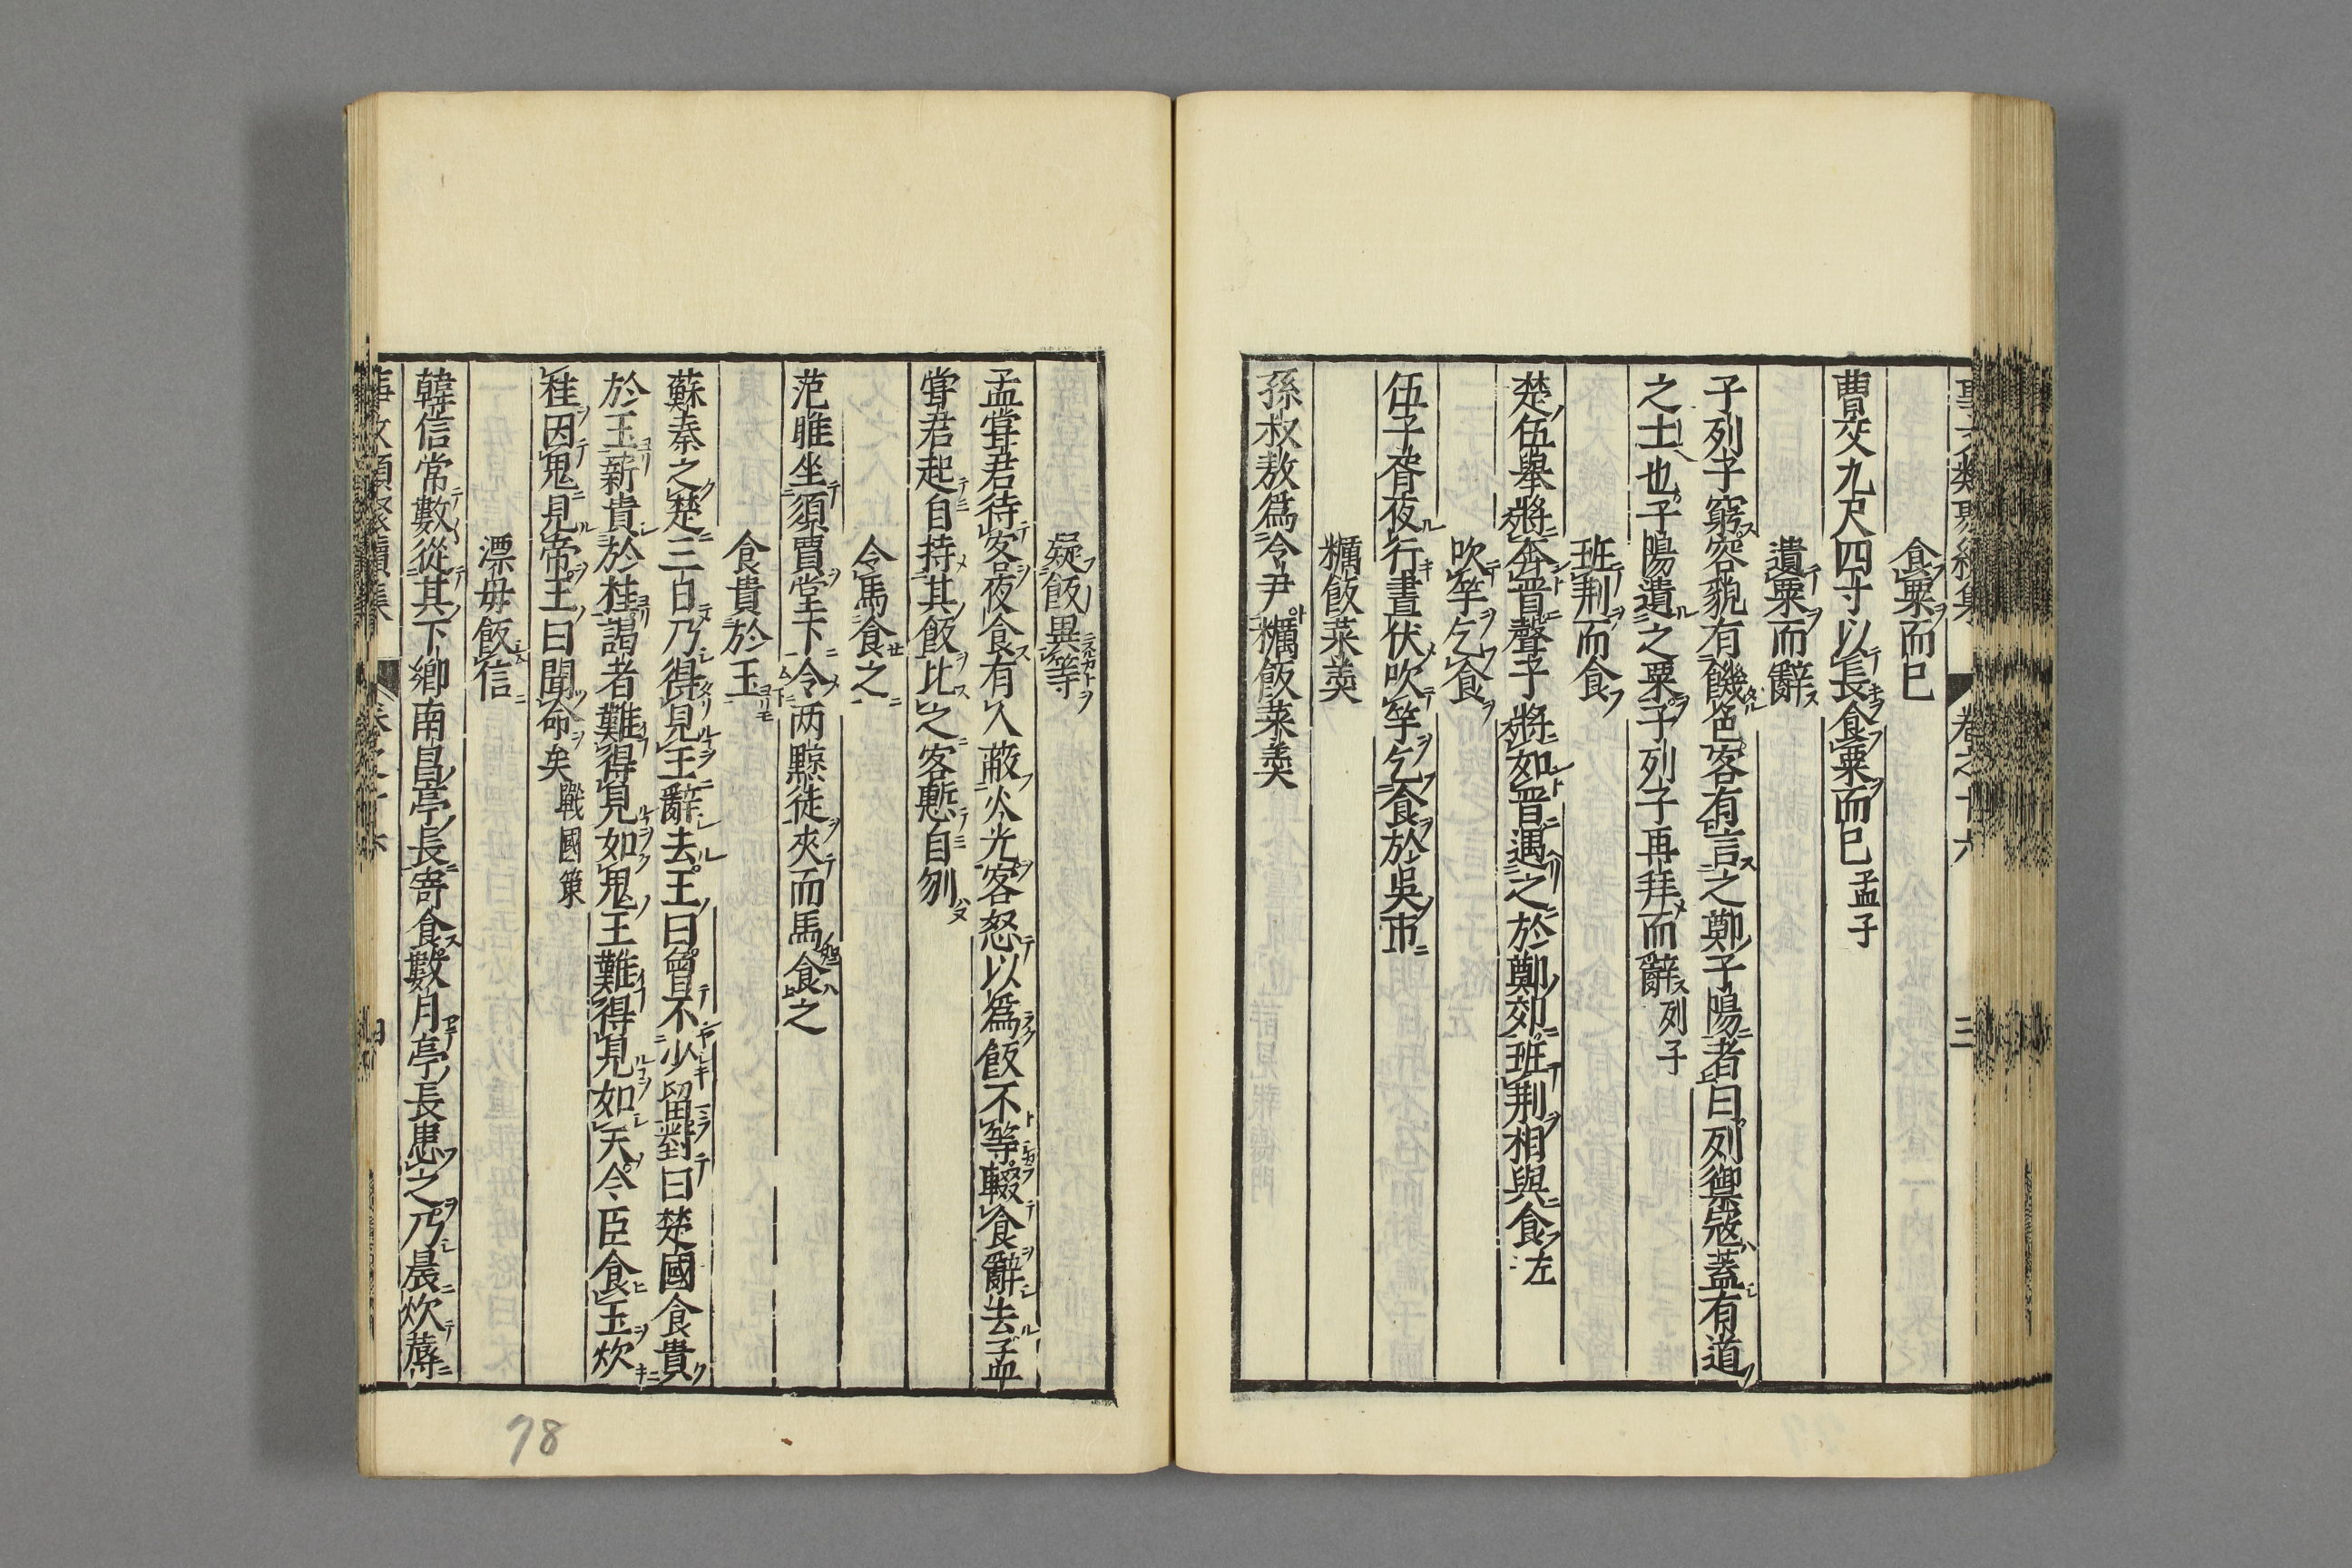 食粟而已
曹交九尺四寸以長食粟而已孟子
遺粟而辭
子列子窮容貌有饑色客有言之鄭子陽者曰列禦寇蓋有道
之士也子陽遺之粟子列子再拜而辭列子
班荆而食
楚伍舉將奔晋聲子將如晋遇之於鄭郊班荆相與食左
吹竽乞食
伍子胥夜行晝伏吹竽乞食於吳市
糲飯菜羹
孫叔敖爲令尹糲飯菜羹
疑飯異等
孟甞君待客夜食有人蔽火光客怒以爲飯不等輟食辭去孟
甞君起自持其飯比之客慙自刎
令馬食之
范雎坐須賈堂下令两黥徒夾而馬食之
食貴於玉
蘇秦之楚三日乃得見王辭去王曰曾不少留對曰楚國食貴
於玉薪貴於桂謁者難得見如鬼王難得見如天今臣食玉炊
桂因鬼見帝王曰聞命矣戰國策
漂母飯信
韓信常數從其下鄉南昌亭長寄食數月亭長患之乃晨炊蓐
78